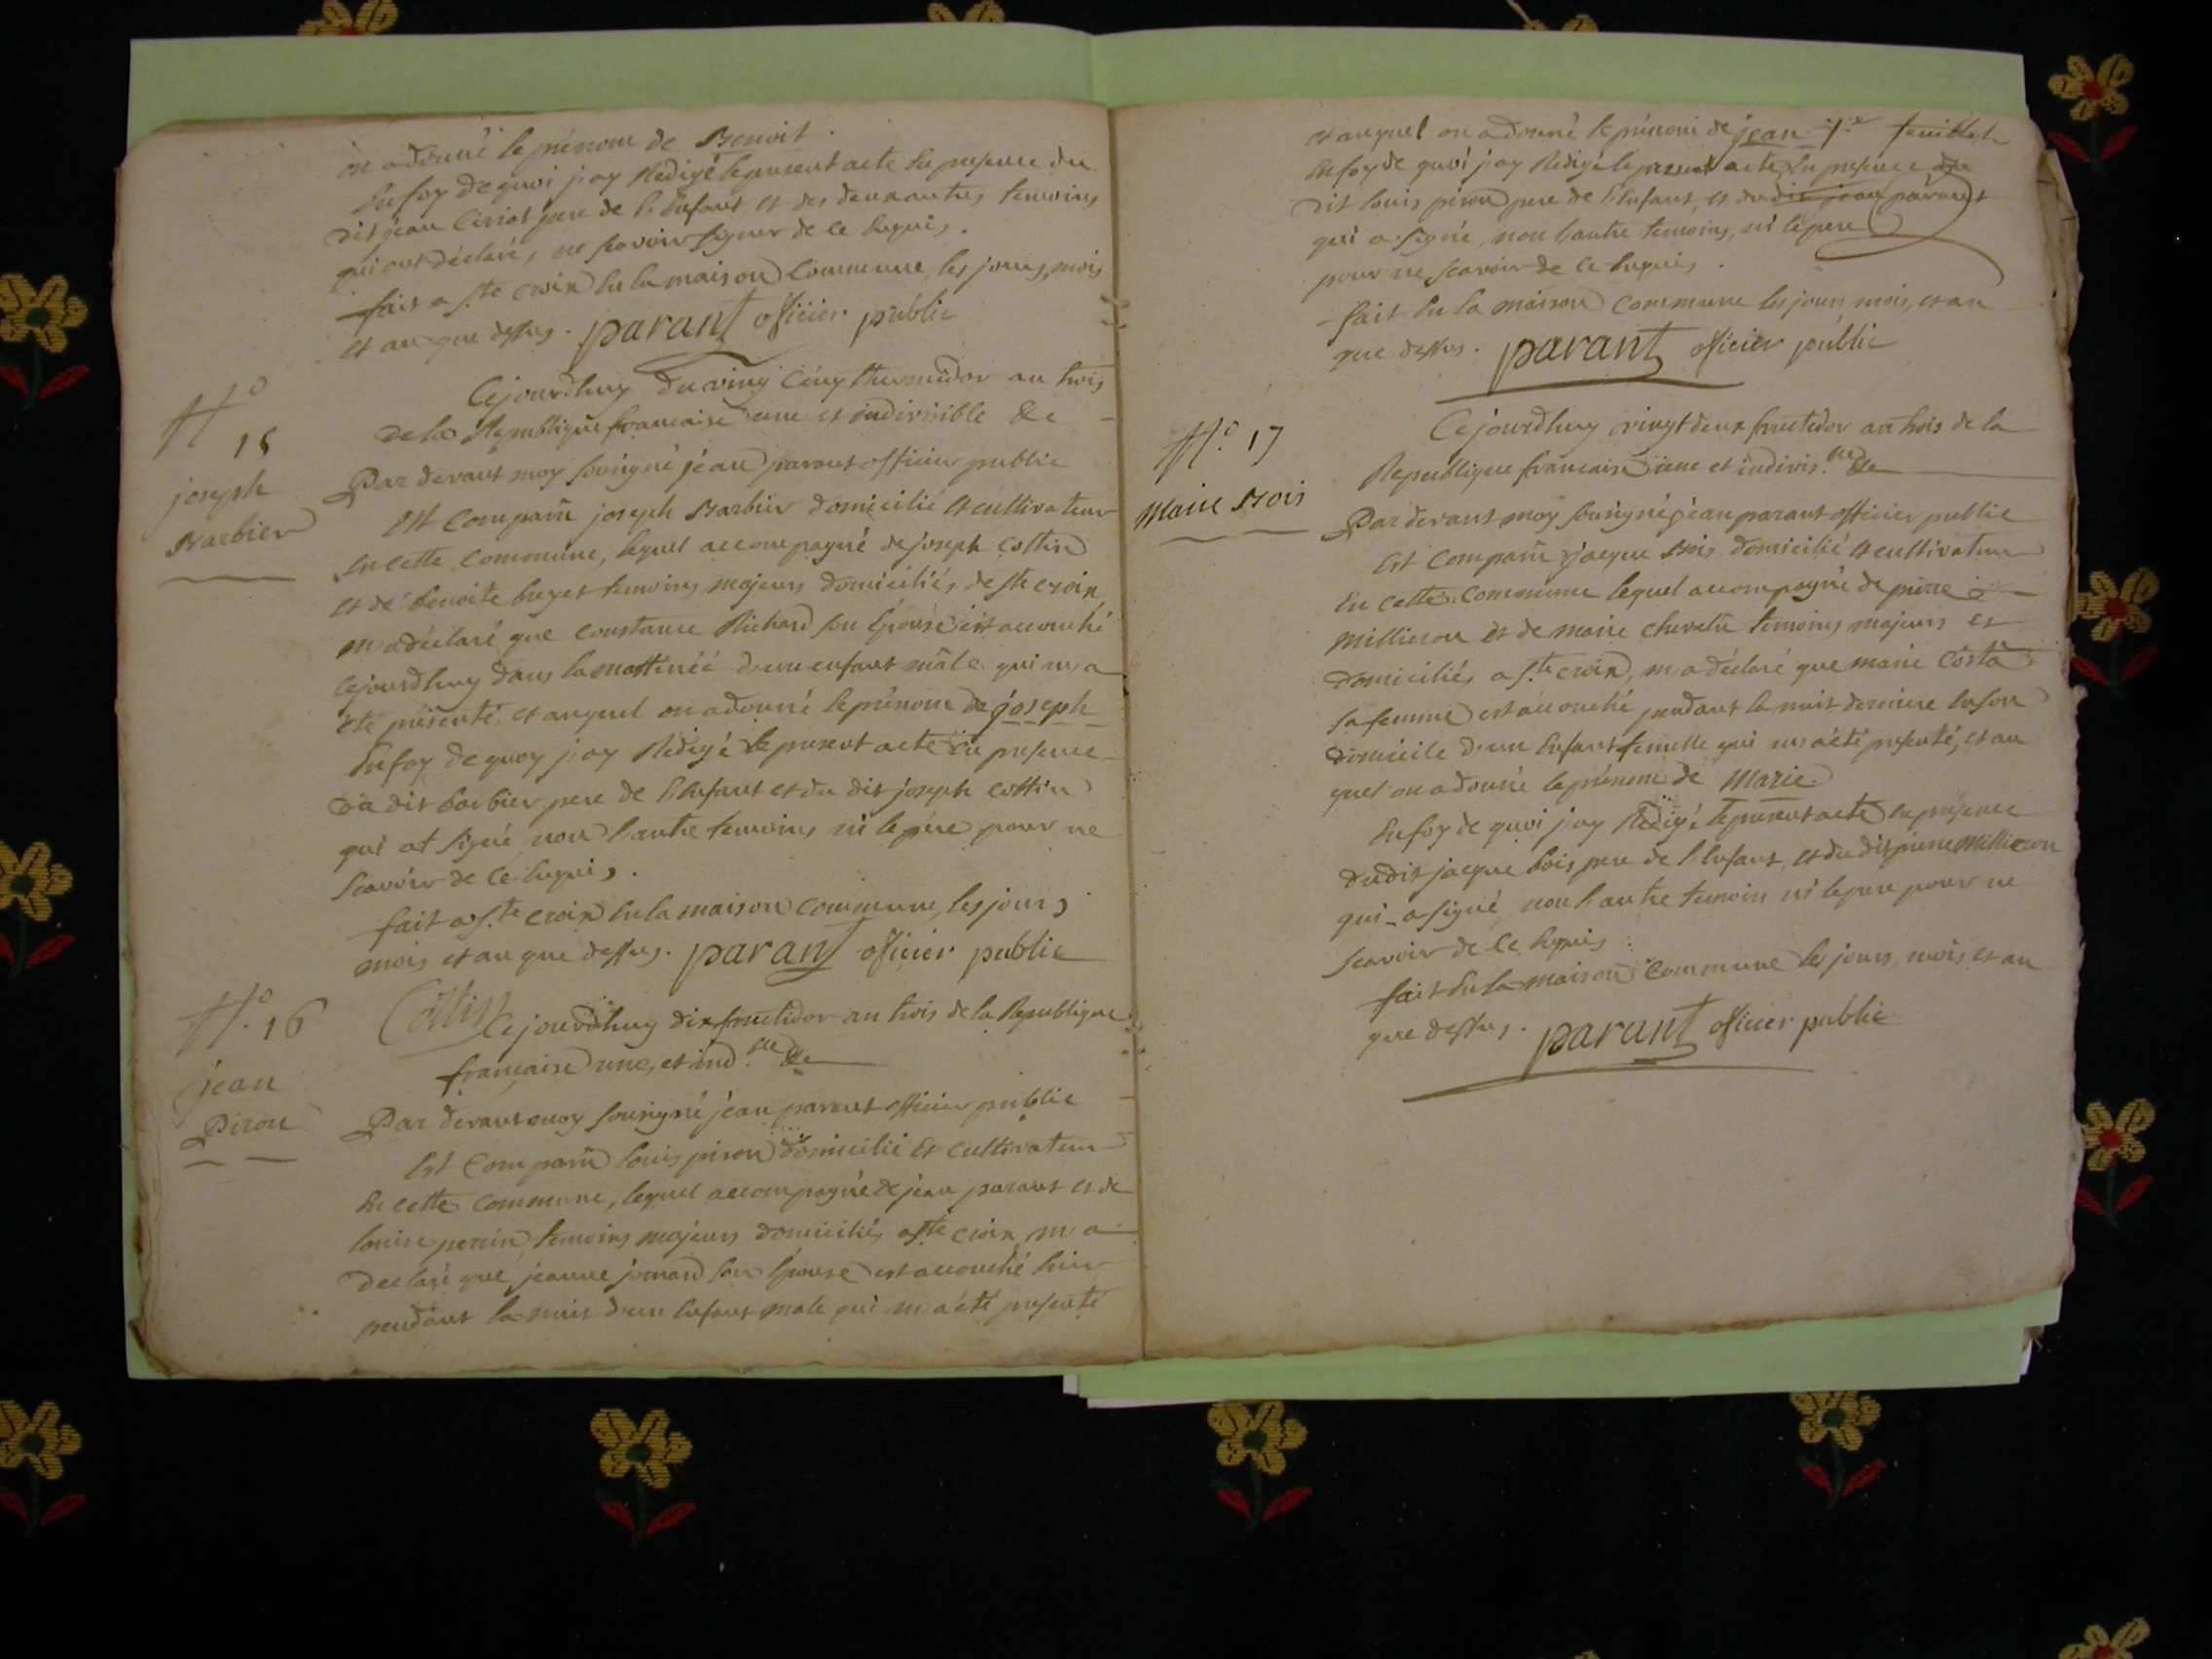 on a donné le prénom de Benoit.
En foy de quoi j'ay Redigé le present acte En presence du
dit jean Ciriat pere de l'Enfant, et des deux autres temoins
qui ont déclarés ne scavoir signer de ce Enquis.
fait a Ste croix En la maison Commune, les jours, mois
et an que dessus. parant officier public
No 15
joseph
Barbier
Cejourdhuy du vingt Cinq thermidor an trois
de la Republique francaise une et indivisible &c
Par devant moy sousigné jean parant officier public
Est Comparu joseph Barbier domicilié et cultivateur
En cette Commune, lequel accompagné de joseph Cottin
et de benoite buget temoins majeurs domiciliés de ste croix
m'a déclaré que Constance Richard son Epouse est accouché
cejourdhuy dans la mattinéé d'un enfant mâle qui m'a
été présenté, et auquel on a donné le prénom de joseph
En foy de quoy j'ay Redigé le present acte En presence
du dit barbier pere de l'Enfant et du dit joseph cottin
qui at signé, non l'autre temoins ni le père pour ne
Scavoir de ce Enquis.
fait a Ste croix En la maison commune, les jours
mois et an que dessus. parant officier public
Cottin
No. 16
jean
Piron
Cejourdhuy dix fructidor an trois de la Republique
francaise une, et ind.ble &c
Par devant moy sousigné jean parant officier public
Est Comparu louis piron domicilié Et cultivateur
En cette Commune, lequel accompagné de jean parant et de
louise perrin, temoins majeurs domiciliés a Ste croix m'a
declaré que jeanne jomard son Epouse est accouché hier
pendant la nuit d'un Enfant male qui m'a été presenté
et auquel on a donné le prénom de jean 7.e feuillet
En foy de quoi j'ay Redigé le present acte En presence du
dit louis piron pere de l'Enfant, et du dit jean parant
qui a signé, non l'autre temoins, ni le pere
pour ne scavoir de ce Enquis.
fait En la maison Commune les jours, mois, et an
que dessus. parant officier public
No. 17
Marie Bois
Cejourdhuy vingt deux fructidor an trois de la
Republique francaise une et indivis.ble &c
Par devant moy sousigné jean parant officier public
Est Comparu jacque Bois domicilié et cultivateur
En cette Commune lequel accompagné de pierre
millieron et de marie chevalu temoins majeurs et
domiciliés a Ste croix, m'a déclaré que marie Costa
sa femme est accouché pendant la nuit derniere En son
domicile d'un Enfant femelle qui m'a été presenté, et au
quel on a donné le prénom de Marie
En foy de quoi j'ay Redigé le present acte En présence
du dit jacque bois pere de l'Enfant, et du dit pierre Millieron
qui a signé, non l'autre temoin ni le pere pour ne
Scavoir de ce Enquis.
fait En la maison Commune les jours, mois et an
que dessus. parant officier public